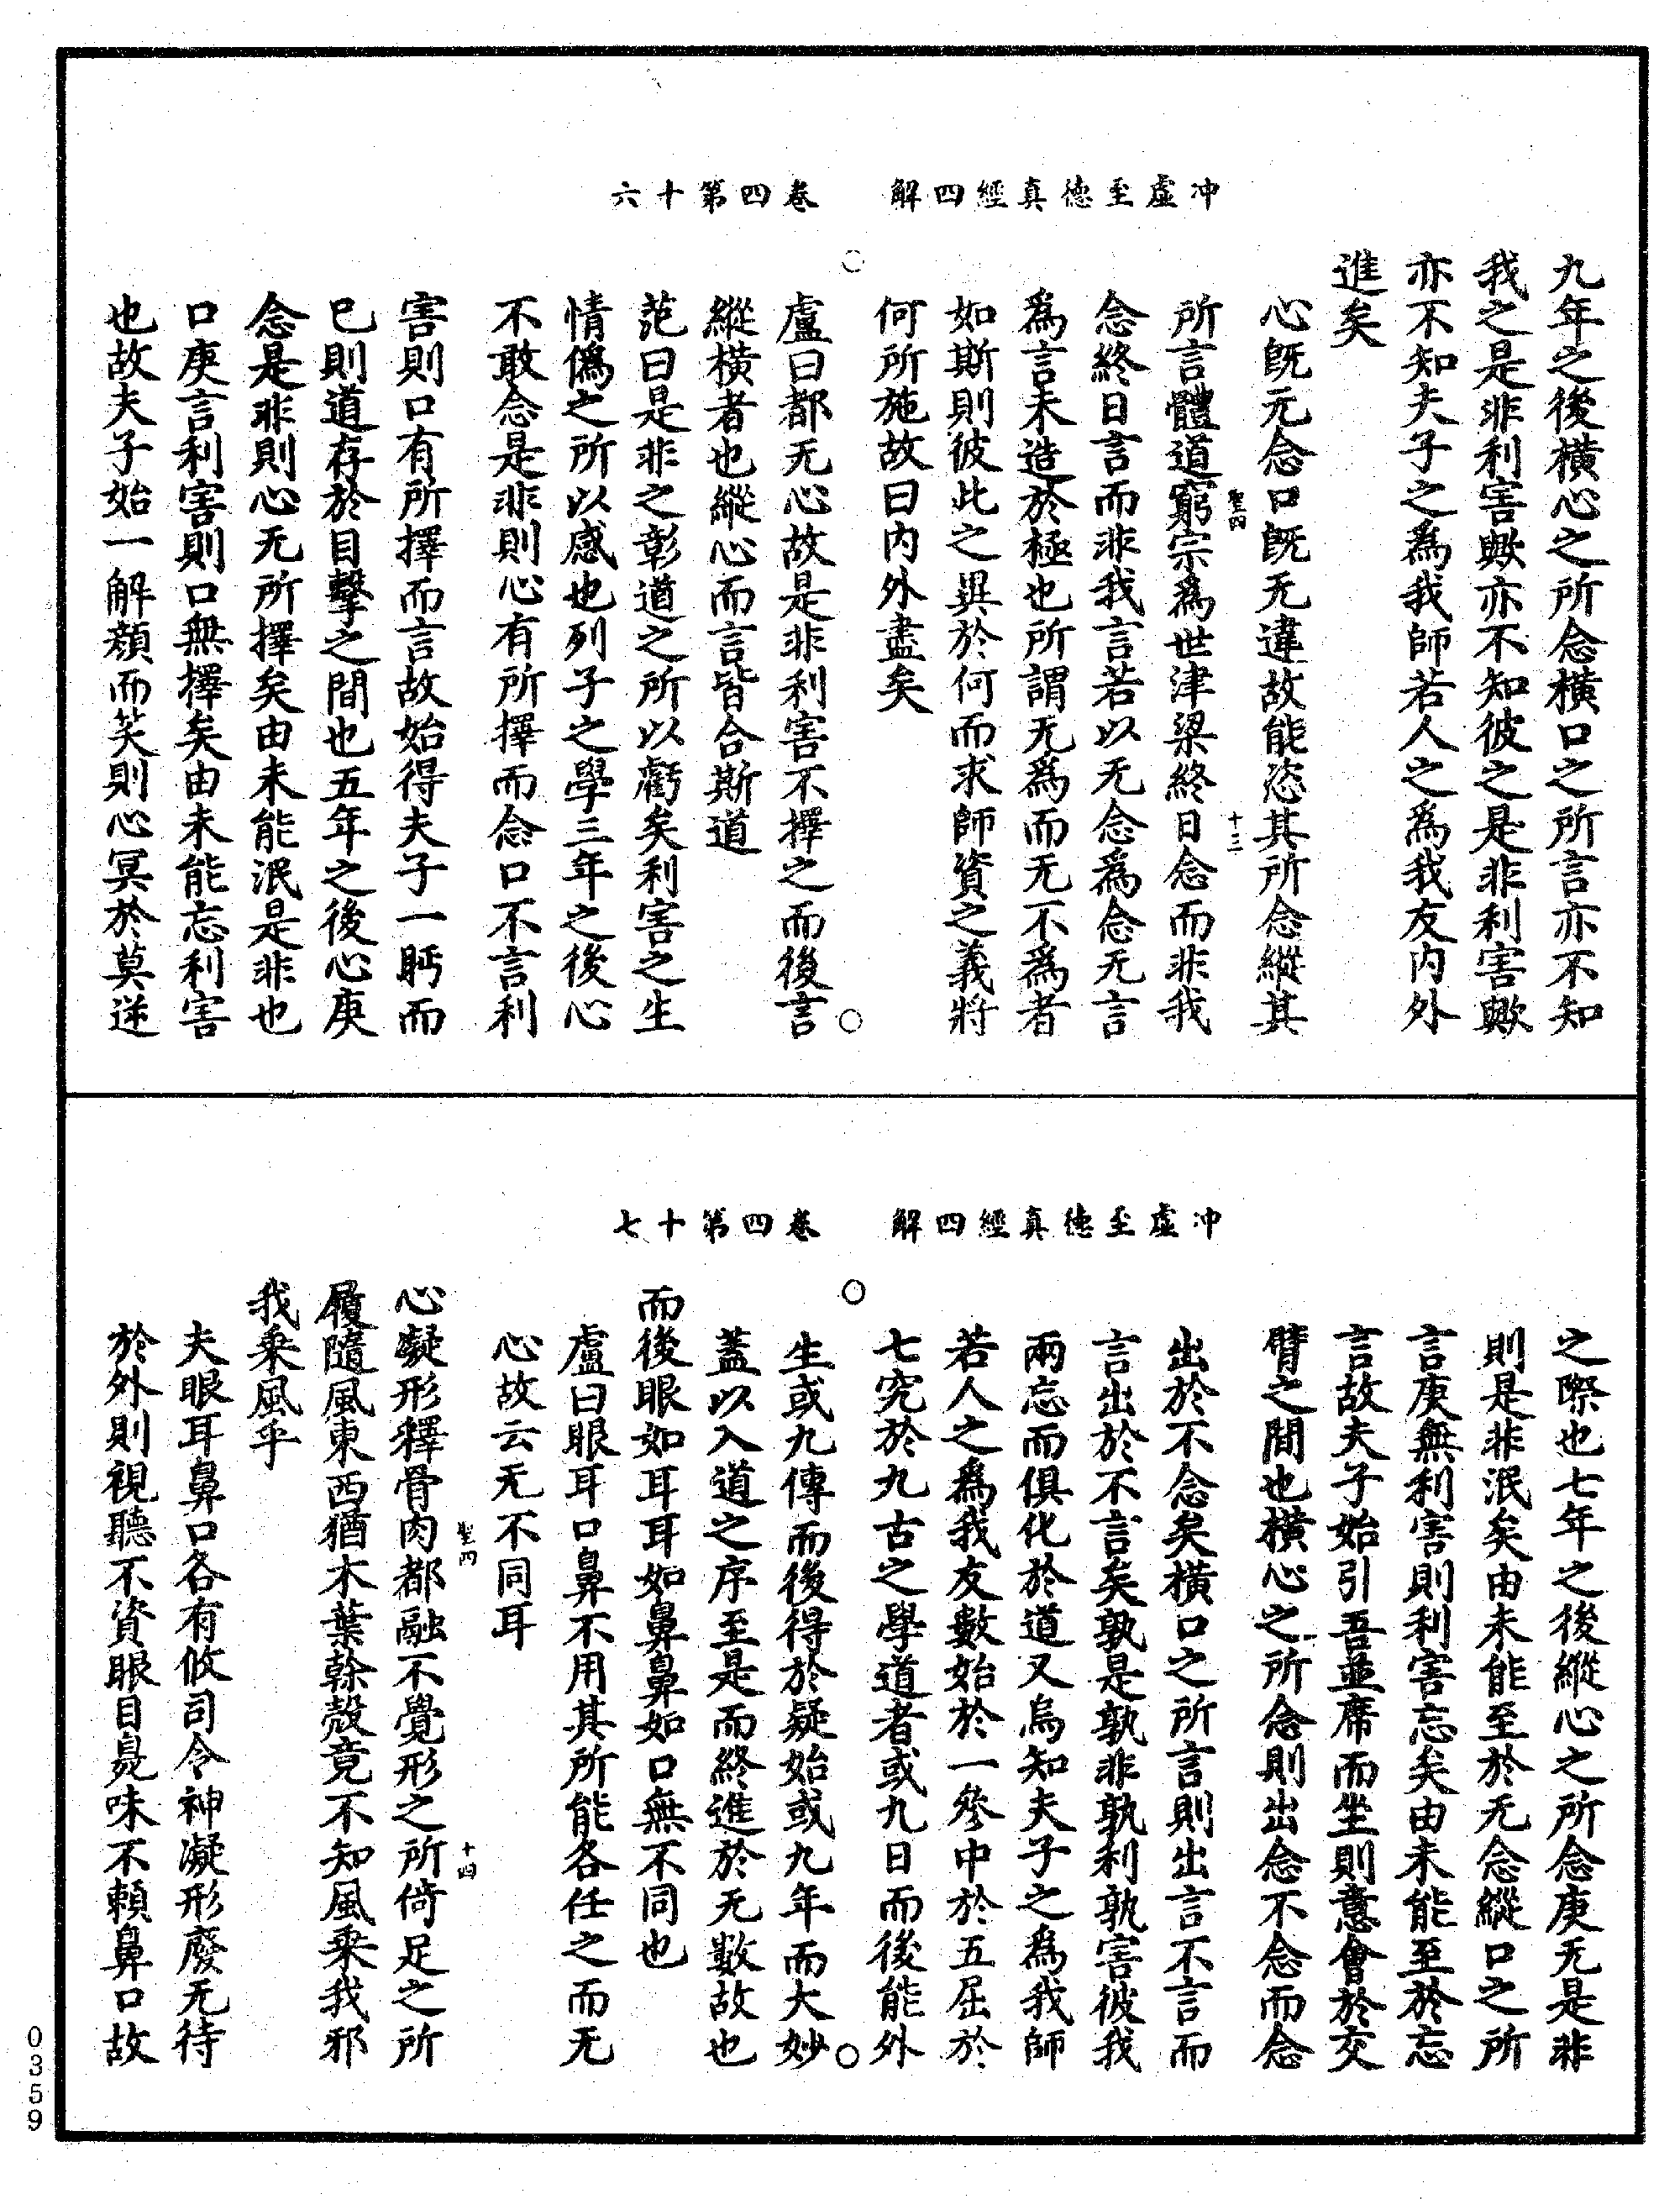 冲虛至德真經四解　卷四第十六
九年之後橫心之所念橫口之所言亦不知
我之是非利害歟亦不知彼之是非利害歟
亦不知夫子之為我師若人之為我友內外
進矣
心既无念口既无違故能恣其所念縱其
所言體道窮宗為世津梁終日念而非我
聖四
十三
念終日言而非我言若以无念為念无言
為言未造於極也所謂无為而无不為者
如斯則彼此之異於何而求師資之義將
何所施故曰內外盡矣
盧曰都无心故是非利害不擇之而後言
縱橫者也縱心而言皆合斯道
范曰是非之彰道之所以虧矣利害之生
情偽之所以感也列子之學三年之後心
不敢念是非則心有所擇而念口不言利
害則口有所擇而言故始得夫子一眄而
已則道存於目擊之間也五年之後心庚
念是非則心无所擇矣由未能泯是非也
口庚言利害則口無擇矣由未能忘利害
也故夫子始一解顏而笑則心冥於莫逆
冲虛至德真經四解　卷四第十七
之際也七年之後縱心之所念庚无是非
則是非泯矣由未能至於无念縱口之所
言庚無利害則利害忘矣由未能至於忘
言故夫子始引吾並席而坐則意會於交
臂之間也橫心之所念則出念不念而念
出於不念矣橫口之所言則出言不言而
言出於不言矣孰是孰非孰利孰害彼我
兩忘而俱化於道又烏知夫子之為我師
若人之為我友數始於一參中於五屈於
七究於九古之學道者或九日而後能外
生或九傳而後得於疑始或九年而大妙
蓋以入道之序至是而終進於无數故也
而後眼如耳耳如鼻鼻如口無不同也
盧曰眼耳口鼻不用其所能各任之而无
心故云无不同耳
聖四
十四
心凝形釋骨肉都融不覺形之所倚足之所
履隨風東西猶木葉榦殼竟不知風乘我邪
我乘風乎
夫眼耳鼻口各有攸司令神凝形廢无待
於外則視聽不資眼目臭味不賴鼻口故
0359